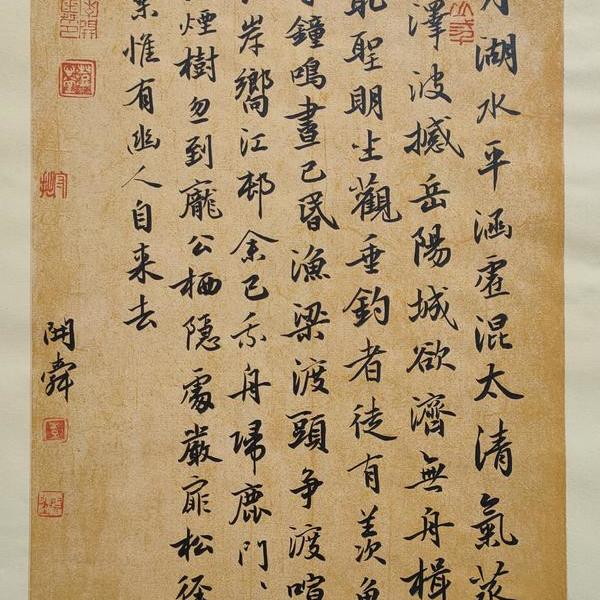 月湖水平涵虛混太清氣蒸
澤波撼岳陽城欲濟無舟楫
恥聖明坐觀垂釣者徒有羨魚
寺鐘鳴晝已昏漁梁渡頭爭渡喧
岸嚮江邨余已乘舟歸鹿門、
煙樹忽到龐公栖隱處嚴扉松徑
惟有幽人自来去
開舜